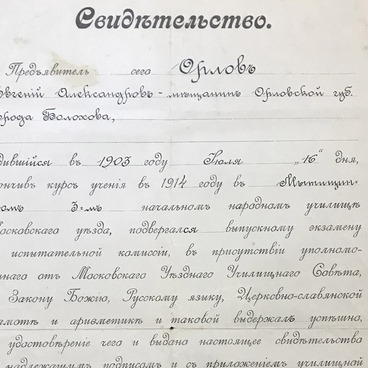 Свидѣтельство.
Предъявитель сего Орловъ
Евгеній Александровъ - мѣщанинъ Орловской губ.
города Болохова,
дившійся въ 1903 году Іюля „16" дня,
ончивъ курсъ ученія въ 1914 году въ Мытищин-
омъ 3-мъ начальномъ народномъ училищѣ
осковскаго уѣзда, подвергался выпускному экзамену
испытательной комиссіи, въ присутствіи уполномо-
ннаго отъ Московскаго Уѣзднаго Училищнаго Совѣта,
Закону Божію, Русскому языку, Церковно-славянской
амотѣ и ариѳметикѣ и таковой выдержалъ успѣшно,
удостовѣреніе чего и выдано настоящее свидѣтельство
надлежащимъ подписомъ и съ приложеніемъ училищной